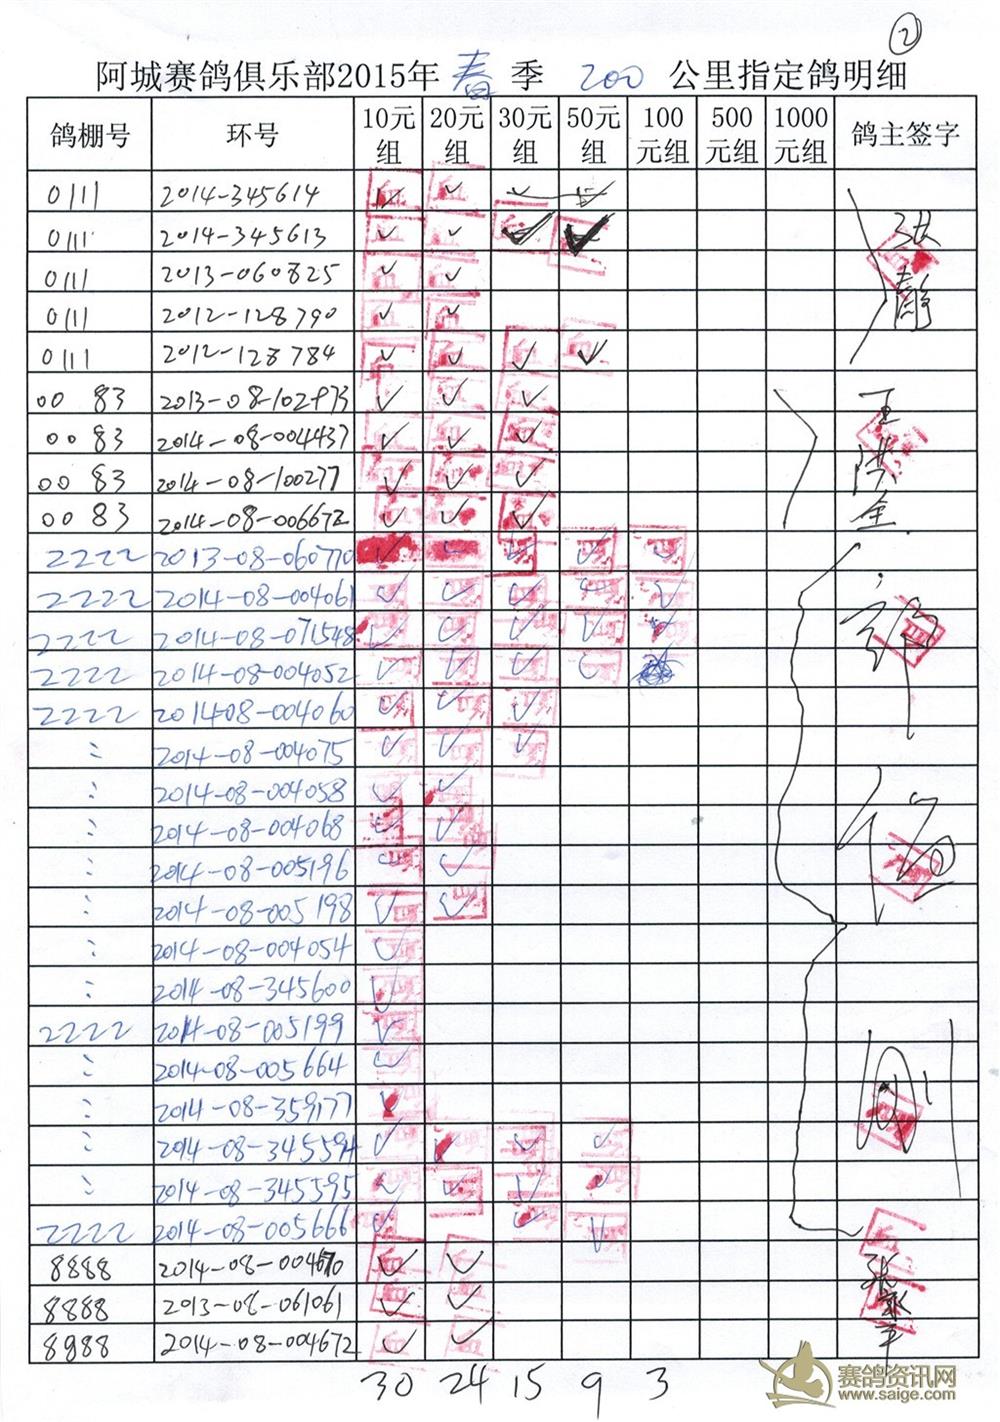 ②
阿城赛鸽俱乐部2015年 春 季 200 公里指定鸽明细
鸽棚号 环号 10元组 20元组 30元组 50元组 100元组 500元组 1000元组 鸽主签字
0111 2014-345614 ✓ ✓ ✓ ✓
0111 2014-345613 ✓ ✓ ✓ ✓
0111 2013-060825 ✓ ✓
0111 2012-128790 ✓ ✓
0111 2012-128784 ✓ ✓ ✓ ✓
张静
0083 2013-08-102973 ✓ ✓ ✓
0083 2014-08-004437 ✓ ✓ ✓
0083 2014-08-100277 ✓ ✓ ✓
0083 2014-08-006672 ✓ ✓ ✓
王洪全
2222 2013-08-060770 ✓ ✓ ✓ ✓ ✓
2222 2014-08-004061 ✓ ✓ ✓ ✓ ✓
2222 2014-08-071548 ✓ ✓ ✓ ✓ ✓
2222 2014-08-004052 ✓ ✓ ✓ ✓
2222 201408-004060 ✓ ✓ ✓
: 2014-08-004075 ✓ ✓ ✓
: 2014-08-004058 ✓ ✓
: 2014-08-004068 ✓ ✓
: 2014-08-005196 ✓ ✓
: 2014-08-005198 ✓ ✓
: 2014-08-004054 ✓
: 2014-08-345600 ✓
2222 2014-08-005199 ✓
: 2014-08-005664 ✓
: 2014-08-359177 ✓
: 2014-08-345594 ✓ ✓ ✓ ✓
: 2014-08-345595 ✓ ✓ ✓ ✓
2222 2014-08-005666 ✓ ✓ ✓
8888 2014-08-004670 ✓ ✓
8888 2013-08-061061 ✓ ✓
8988 2014-08-004672 ✓ ✓
30 24 15 9 3
赛鸽资讯网
www.saige.com